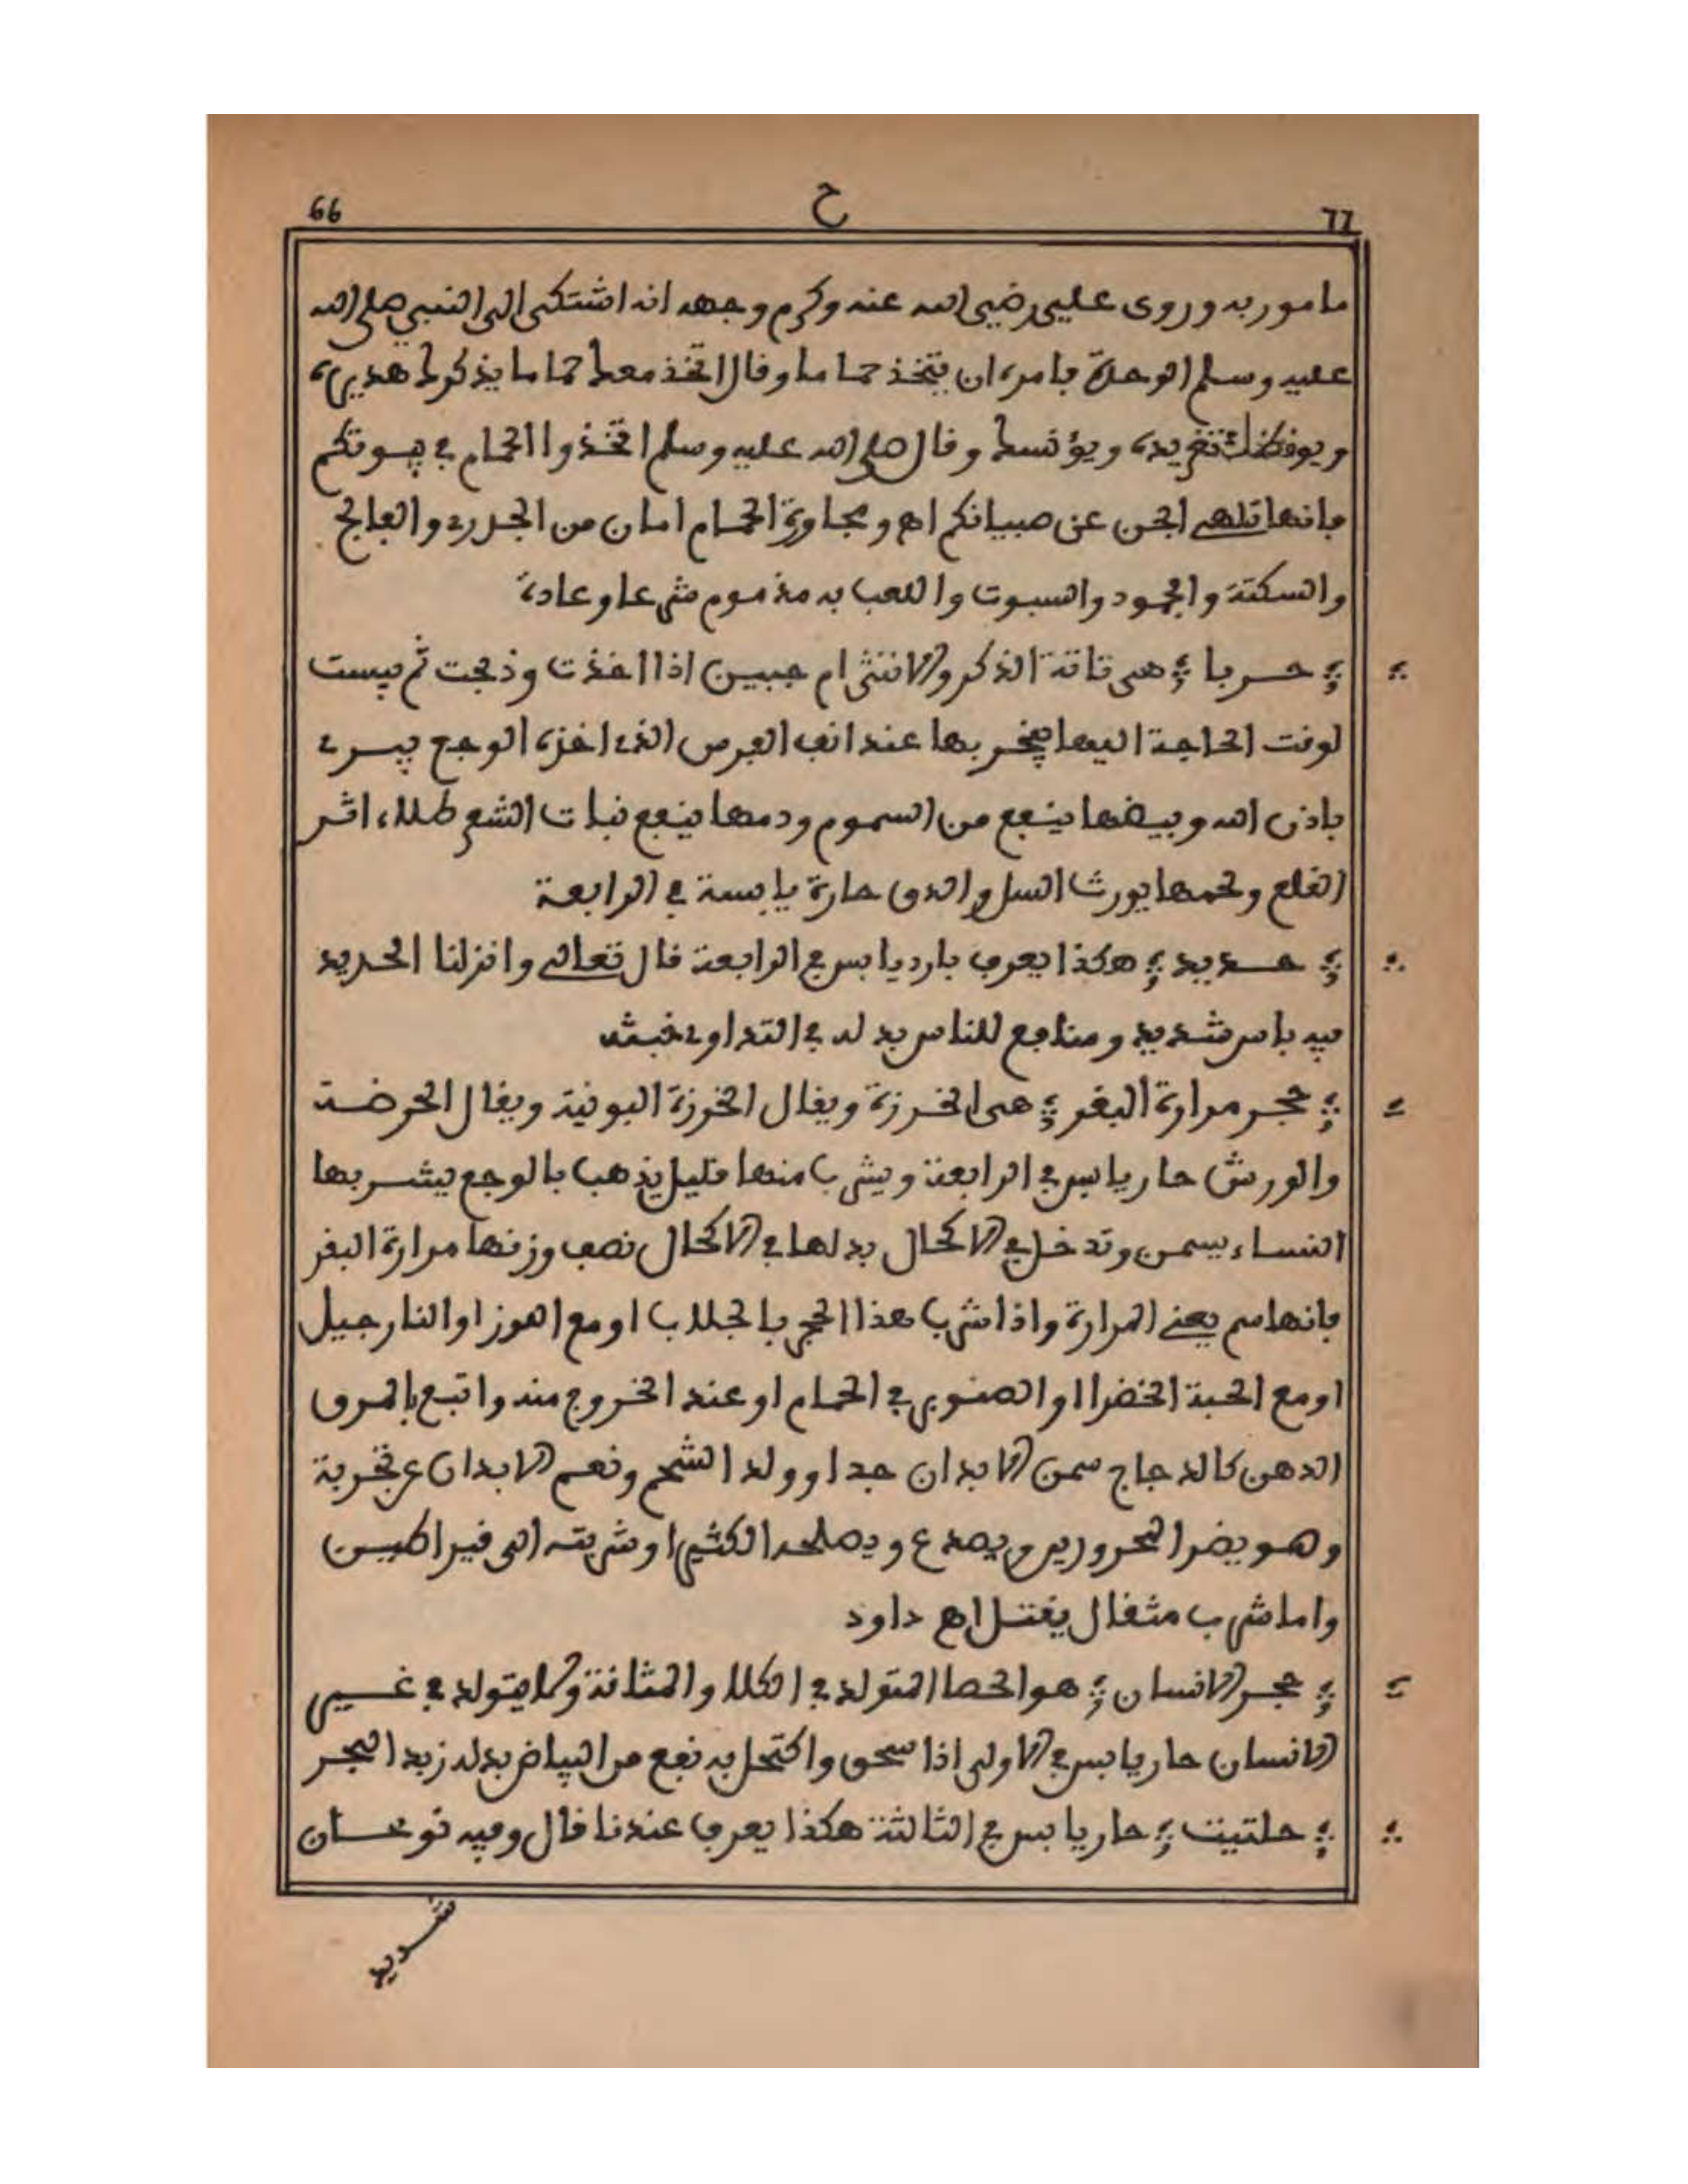 66 ح 77
مامور به وروى علي رضي الله عنه وكرم وجهه انه اشتكى الى النبي صلى الله
عليه وسلم الوحدة فامره ان يتخذ حماما وقال اتخذ معك حماما يذكرك هديره
ويوقظك تغريده ويؤنسك وقال صلى الله عليه وسلم اتخذوا الحمام في بيوتكم
فانها تلهي الجن عن صبيانكم اهـ ومجاورة الحمام امان من الخدر والفالج
والسكتة والجمود والسبوت واللعب به مذموم شرعا وعادة
حربا هي تاتة الذكر والانثى ام حبين اذا اخذت وذبحت ثم يبست
لوقت الحاجة اليها يبخر بها عند انف الفرس الذي اخزه الوجع يبرى
باذن الله وبيضها ينفع من السموم ودمها ينفع نبات الشعر طلاء اثر
القلع ولحمها يورث السل والدق حارة يابسة في الرابعة
حديد هكذا يعرف بارد يابس في الرابعة قال تعالى وانزلنا الحديد
فيه باس شديد ومنافع للناس بدله في التداوي خبثه
حجر مرارة البقر هي الخرزة ويقال الخرزة البونية ويقال الحرضة
والورش حار يابس في الرابعة ويشرب منها قليل يذهب بالوجع يشربها
النساء يسمن وتدخل في الاكحال بدلها في الاكحال نصف وزنها مرارة البقر
فانها سم يعني المرارة واذا شرب هذا الحجر بالجلاب او مع الموز او النارجيل
او مع الحبة الخضرا او الصنوبر في الحمام او عند الخروج منه واتبع بالمرق
الدهن كالدجاج سمن الابدان جدا وولد الشحم ونعم الابدان عن تجربة
وهو يضر المحرورين ويصدع ويصلحه الكثيرا وشربته الى قيراطين
واما شرب مثقال يقتل اهـ داود
حجر الانسان هو الحصا المتولد في الكلا والمثانة وكما يتولد في غير
الانسان حار يابس في الاولى اذا سحق واكتحل به نفع من البياض بدله زبد البحر
حلتيت حار يابس في الثالثة هكذا يعرف عندنا قال وفيه نوعان
شديد